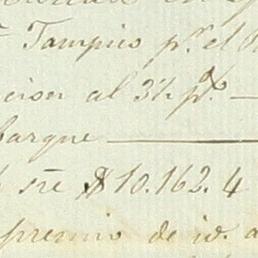 Tampico pr. el
cion al 3½ p%
barque
sre $10.162.4
premio de id. a